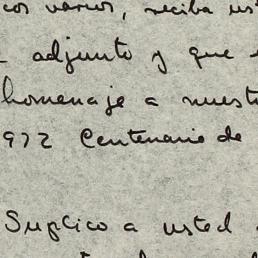 cos varios, reciba us
adjunto y que
homenaje a nuest
972 Centenario de
Suplico a usted